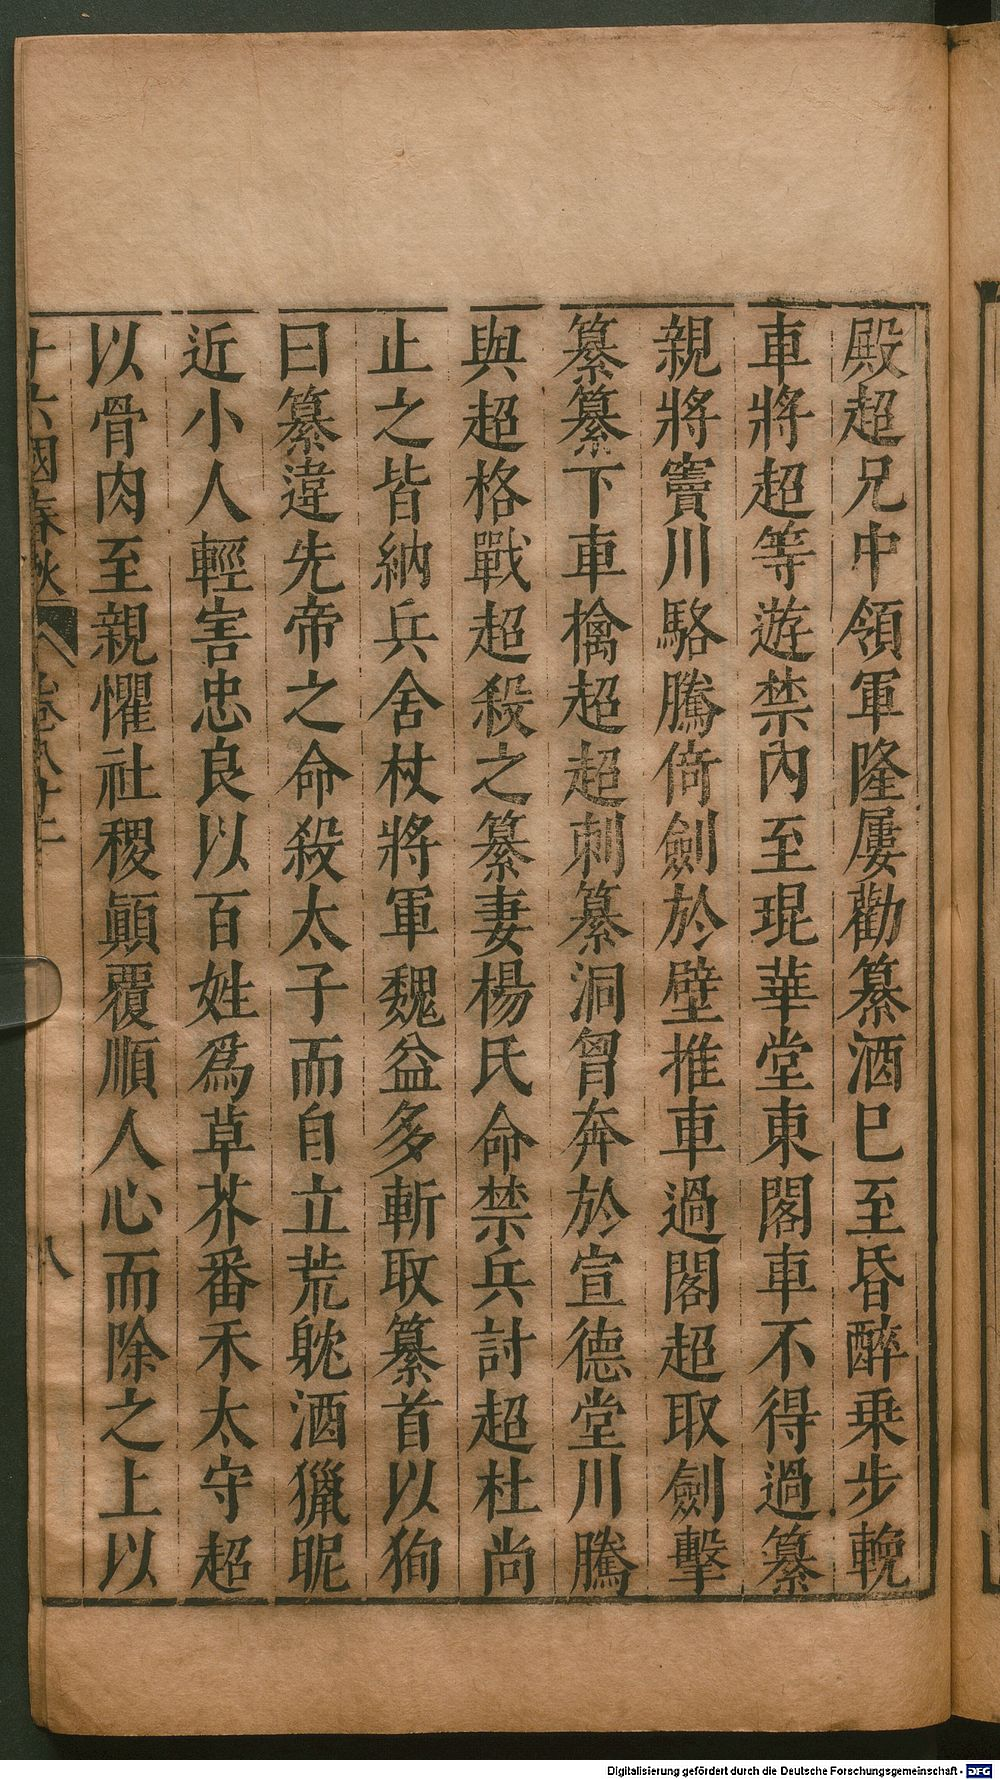 殿超兄中領軍隆屢勸纂酒巳至昏醉乗步輓
車將超等遊禁內至琨華堂東閣車不得過纂
親將竇川駱騰倚劍於壁推車過閣超取劍擊
纂纂下車擒超超刺纂洞胷奔於宣德堂川騰
與超格戰超殺之纂妻楊氏命禁兵討超杜尚
止之皆納兵舍杖將軍魏益多斬取纂首以狥
曰纂違先帝之命殺太子而自立荒躭酒獵昵
近小人輕害忠良以百姓爲草芥番禾太守超
以骨肉至親懼社稷顚覆順人心而除之上以
十六國春秋 卷八十 八
Digitalisierung gefördert durch die Deutsche Forschungsgemeinschaft - DFG